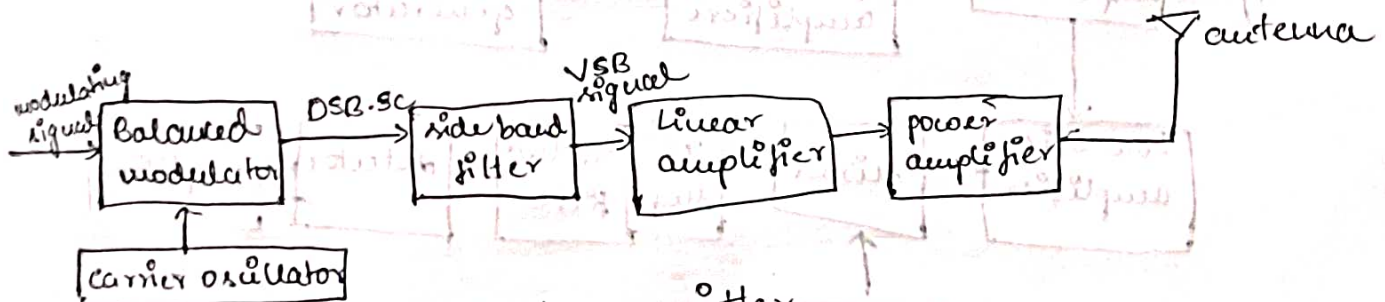 modulating
signal
Balanced
modulator
DSB-SC
side band
filter
VSB
signal
Linear
amplifier
power
amplifier
antenna
carrier oscillator